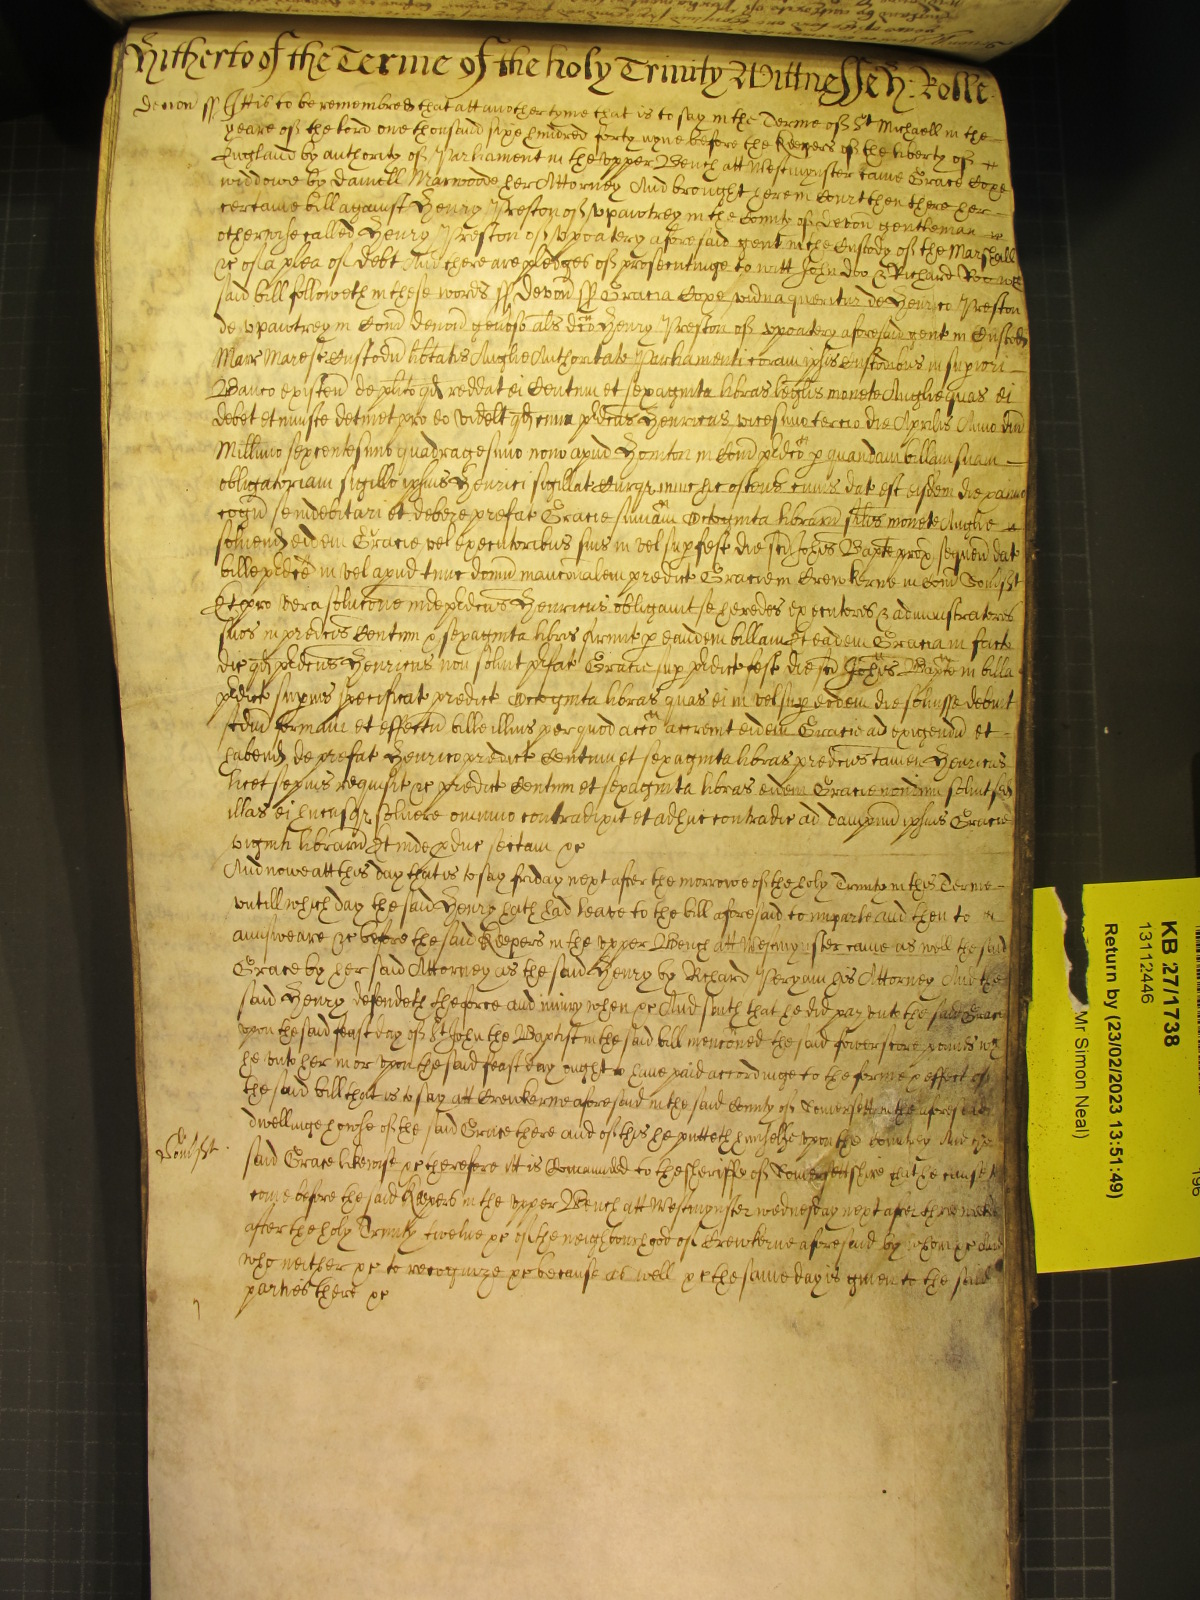 Hitherto of the Terme of the holy Trinity Wittnesseth: Rolle
Devon ss Itt is to be remembred that att another tyme that is to say in the Terme of St Michaell in the
yeare of the lord one thousand sixe hundred forty nyne before the Keepers of the liberty of
England by authority of Parliament in the Vpper Bench att Westmynster came Grace Cope
widdowe by Daniell Marwoode her Attorney And brought here in Court then there her
certaine bill against Henry Preston of Vpawtrey in the County of Devon gentleman
otherwise called Henry Preston of Vpoatery aforesaid gent in the Custody of the Marshall
&c of a plea of debt And there are pledges of prosecutinge to witt John Doo & Richard Roo
said bill followeth in these words ss Devon ss Gracia Cope vidua queritur de Henrico Preston
de Vpawtrey in Com Devon generoso als dco Henry Preston of Vpoatery aforesaid gent in Custod
Marr Maresc Custodu libtatis Anglie Authoritate Parliamenti coram ipsis Custodibus in supiori
Banco existen de plito qd reddat ei Centum et sexaginta libras legalis monete Anglie quas ei
debet et iniuste detinet pro eo videlt qd cum pdcus Henricus vicesimo tercio die Aprilis Anno dni
Millimo sexcentesimo quadragesimo nono apud Honiton in Com pdco p quandam billam suam
obligatoriam sigillo ipsius Henrici sigillat Curq nunc hic ostens cuius dat est eisdem die et anno
cogn se indebitari et debere prefat Gracie summam Octoginta librarum legalis monete Anglie
solvend eidem Gracie vel executoribus suis in vel sup fest die sci Johis Bapte prox sequen dat
bille pdce in vel apud tunc domum mancionalem predict Gracie in Crewkerne in Com Somst
Et pro vera solucone inde pdcus Henricus obligavit se heredes executores & administratores
suos in predcis Centum & sexaginta libris firmit p eandem billam Et eadem Gracia in facto
dic qd pdcus Henricus non solvit pfat Gracie sup pdict fest die sci Johis Bapte in billa
pdict supius specificat predict Octoginta libras quas ei in vel sup eodem die solvisse debuit
scdm formam et effectum bille illius per quod acco accrevit eidem Gracie ad exigendum et
habend de prefat Henrico predict Centum et sexaginta libras predcus tamen Henricus
licet sepius requisit &c predict Centum et sexaginta libras eidem Gracie nondum solvit sed
illas ei hucusq solvere omnino contradixit et adhuc contradic ad dampnum ipsius Gracie
viginti librarum Et inde pduc sectam &c
And nowe att this day that is to say friday next after the morrowe of the holy Trinity in this Terme
vntill which day the said Henry hath had leave to the bill aforesaid to imparle and then to
aunsweare &c before the said Keepers in the Vpper Bench att Westmynster came as well the said
Grace by her said Attorney as the said Henry by Richard Peryam his Attorney And the
said Henry defendeth the force and iniury when &c And saith that he did pay vnto the said Grace
vpon the said feast day of St John the Baptist in the said bill mencioned the said fower score pounds
he vnto her in or vpon the said feast day ought to have paid accordinge to the forme & effect of
the said bill that is to say att Crewkerne aforesaid in the said County of Somersett in the aforesaid
dwellinge howse of the said Grace there and of this he putteth himselfe vpon the Countrey And the
Somst said Grace likewise &c therefore itt is Comanded to the sheriffe of Somersettshire that he cause to
come before the said Keepers in the Vpper Bench att Westmynster wednesday next after three weekes
after the holy Trinity twelve &c of the neighbourhood of Crewkerne aforesaid by whom &c And
who neither &c to recognize &c because as well &c the same day is given to the said
parties there &c
KB 27/1738
13112446
Return by (23/02/2023 13:51:49)
Mr Simon Neal)
196